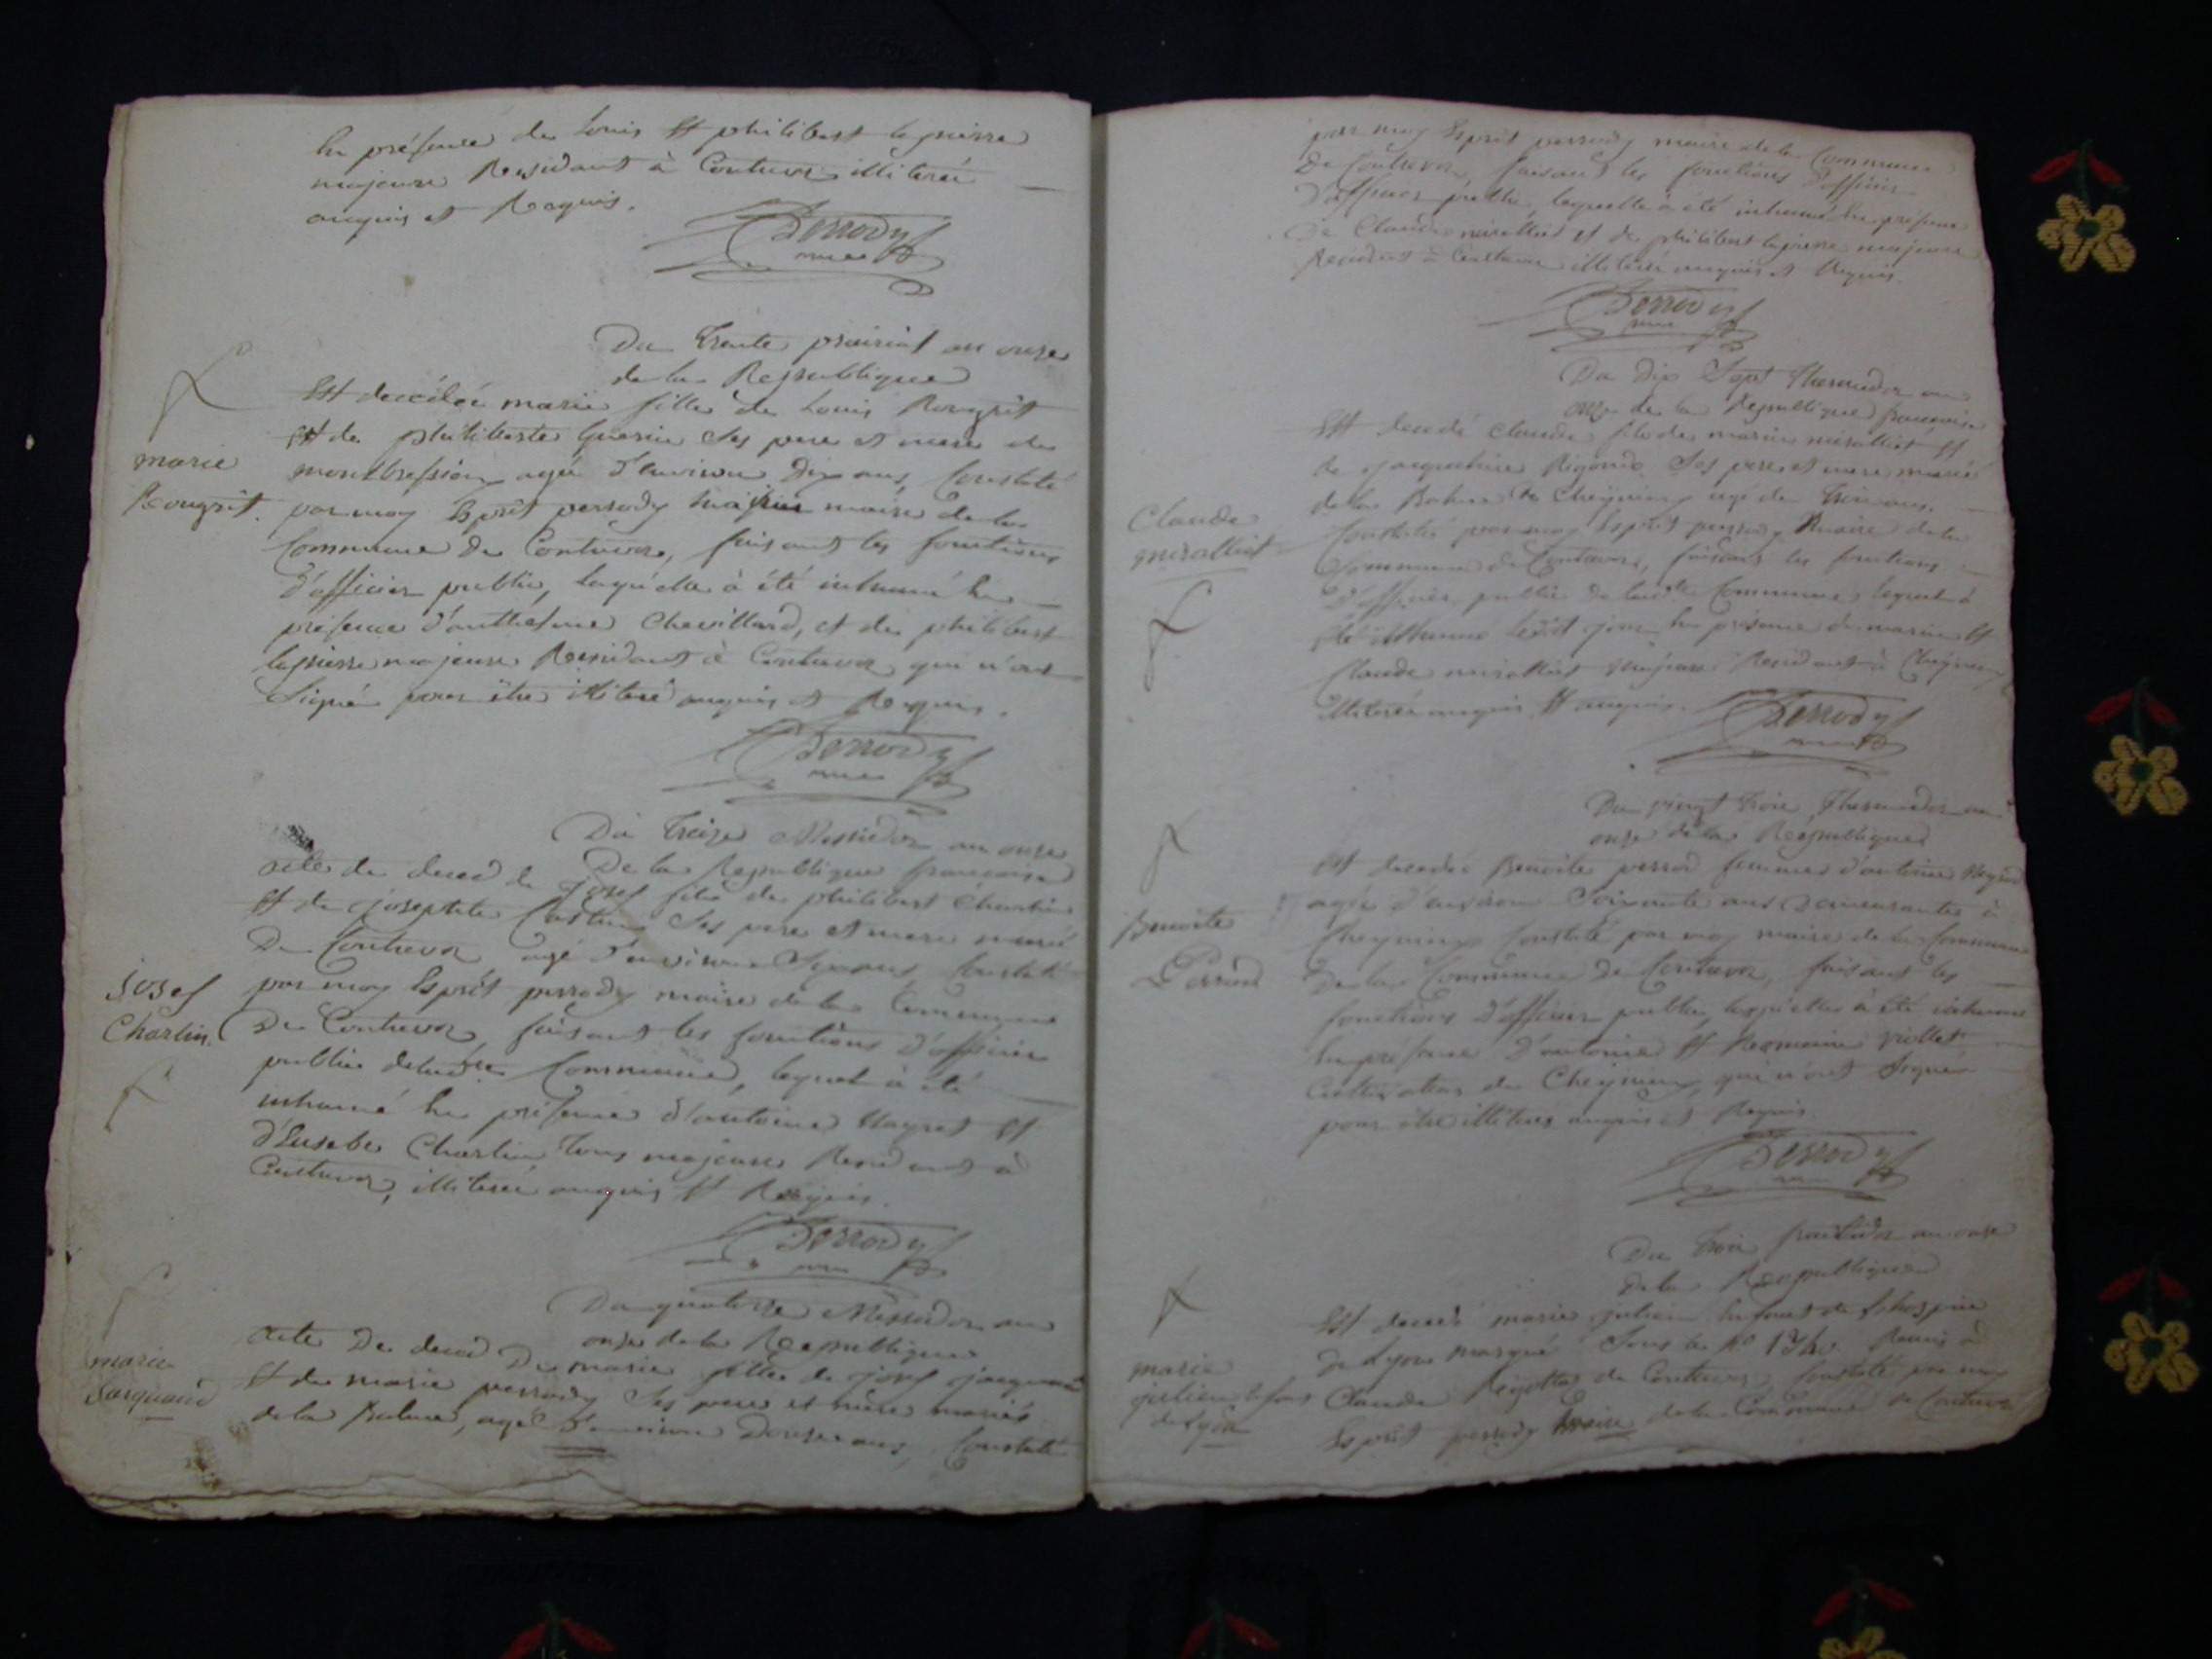 En présence de Louis Et philibert lapierre
majeurs Residant à Contrevoz illiterés
enquis et Requis.
Perrody
maire
Du trente prairial an onze
de la Republique
Est decédée marie fille de Louis Rougrit
Et de philiberte Guerin Ses pere et mere de
montbression agée d'environ Dix ans, Constaté
par moy Esprit perrody maire de la
Commune de Contrevoz, faisant les fonctions
d'officier public, laquelle à été inhumé En
présence d'anthelme Chevillard, et de philibert
lapierre majeurs Residant à Contrevoz qui n'ont
Signé pour être illiteré enquis et Requis.
marie
Rougrit.
Perrody
maire
Du treize Messidor an onze
De la Republique francaise
acte de deced de josef fils de philibert Charlin
Et de josephte Ses pere et mere marié
De Contrevoz agé d'environ Six ans, Constaté
par moy Esprit perrody maire de la Commune
De Contrevoz faisant les fonctions d'officier
public de ladte Commune, lequel à été
inhumé En présence d'antoine Et
d'Eusebe Charlin tous majeurs Residant à
Contrevoz, illiterés enquis Et Requis.
josef
Charlin.
Perrody
maire
Du quatorze Messidor an
onze de la Republique
acte De deced De marie fille de josef jacquand
Et de marie perrody Ses pere et mère mariés
de la Balme, agé d'environ Douze ans, Constaté
marie
Jacquand
par moy Esprit perrody maire de la Commune
De Contrevoz, faisant les fonctions d'officier
d'officier public, laquelle à été inhumé En présence
De Claude miralliet et de philibert lapierre majeurs
Residant à Contrevoz illiterés enquis et Requis.
Perrody
maire
Du dix Sept thermidor an
onze de la Republique francaise
Est decedé Claude fils de marin miralliet Et
de jacqueline Rigond Ses pere et mere marié
de la Balme De Cheignieu agé de trois ans.
Constatés par moy Esprit perrody Maire de la
Commune de Contrevoz, faisant les fonctions
d'officier public de ladte Commune, lequel à
été inhumé ledit jour En présence de marin Et
Claude miralliet majeurs Residant à Cheignieu
illiterés enquis Et enquis.
Claude
miralliet
Perrody
maire
Du vingt trois thermidor an
onze de la Republique
Est decedée Benoite perrod femme d'antoine
agée d'environ Soixante ans Demeurante à
Cheignieu Constaté par moy maire de la Commune
De la Commune de Contrevoz, faisant les
fonctions d'officier public, laquelle à été inhumé
En présence d'antoine Et Viollet
Cultivateur de Cheignieu, qui n'ont Signé
pour être illiteres enquis et Requis.
Benoite
Perrod
Perrody
maire
Du trois fructidor an onze
de la Republique
Est decedé marie julien Enfant de lhospice
de Lyon marqué Sous le No Remis à
Claude de Contrevoz, Constaté par moy
Esprit perrody maire de la Commune de Contrevoz
marie
julien Enfant
de Lyon